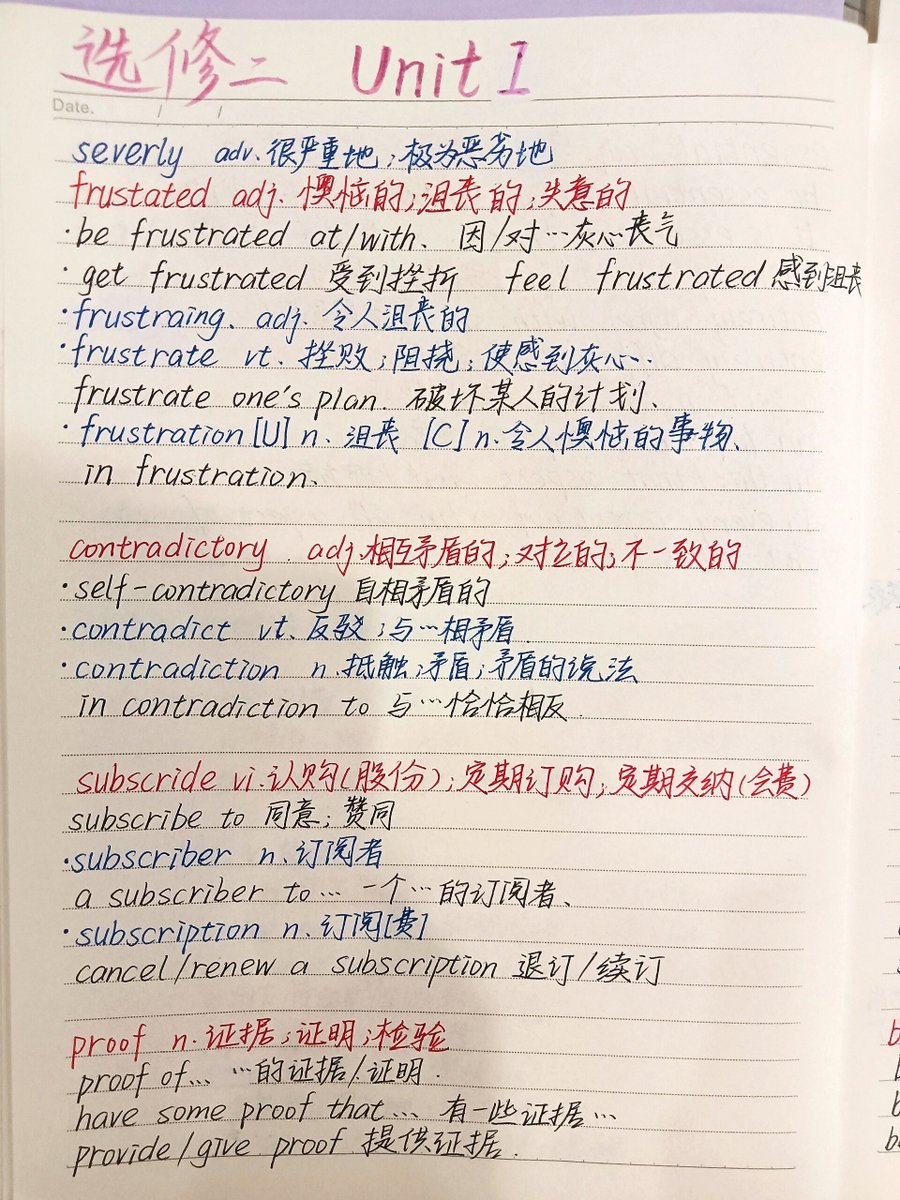 选修二 Unit 1
Date. / /
severly adv.很严重地;极为恶劣地
frustated adj.懊恼的;沮丧的;失意的
·be frustrated at/with. 因/对…灰心丧气
·get frustrated 受到挫折 feel frustrated 感到沮丧
·frustraing. adj.令人沮丧的
·frustrate vt. 挫败;阻挠;使感到灰心..
frustrate one's plan. 破坏某人的计划.
·frustration[U] n. 沮丧 [C] n.令人懊恼的事物.
in frustration.
contradictory. adj.相互矛盾的;对立的;不一致的
·self-contradictory 自相矛盾的
·contradict vt.反驳;与…相矛盾.
·contradiction n.抵触;矛盾;矛盾的说法
in contradiction to 与…恰恰相反.
subscride vi.认购(股份);定期订购;定期交纳(会费)
subscribe to 同意;赞同
·subscriber n.订阅者
a subscriber to… 一个…的订阅者.
·subscription n.订阅[费]
cancel/renew a subscription 退订/续订
proof n.证据;证明;检验
proof of... …的证据/证明.
have some proof that... 有一些证据…
provide/give proof 提供证据.